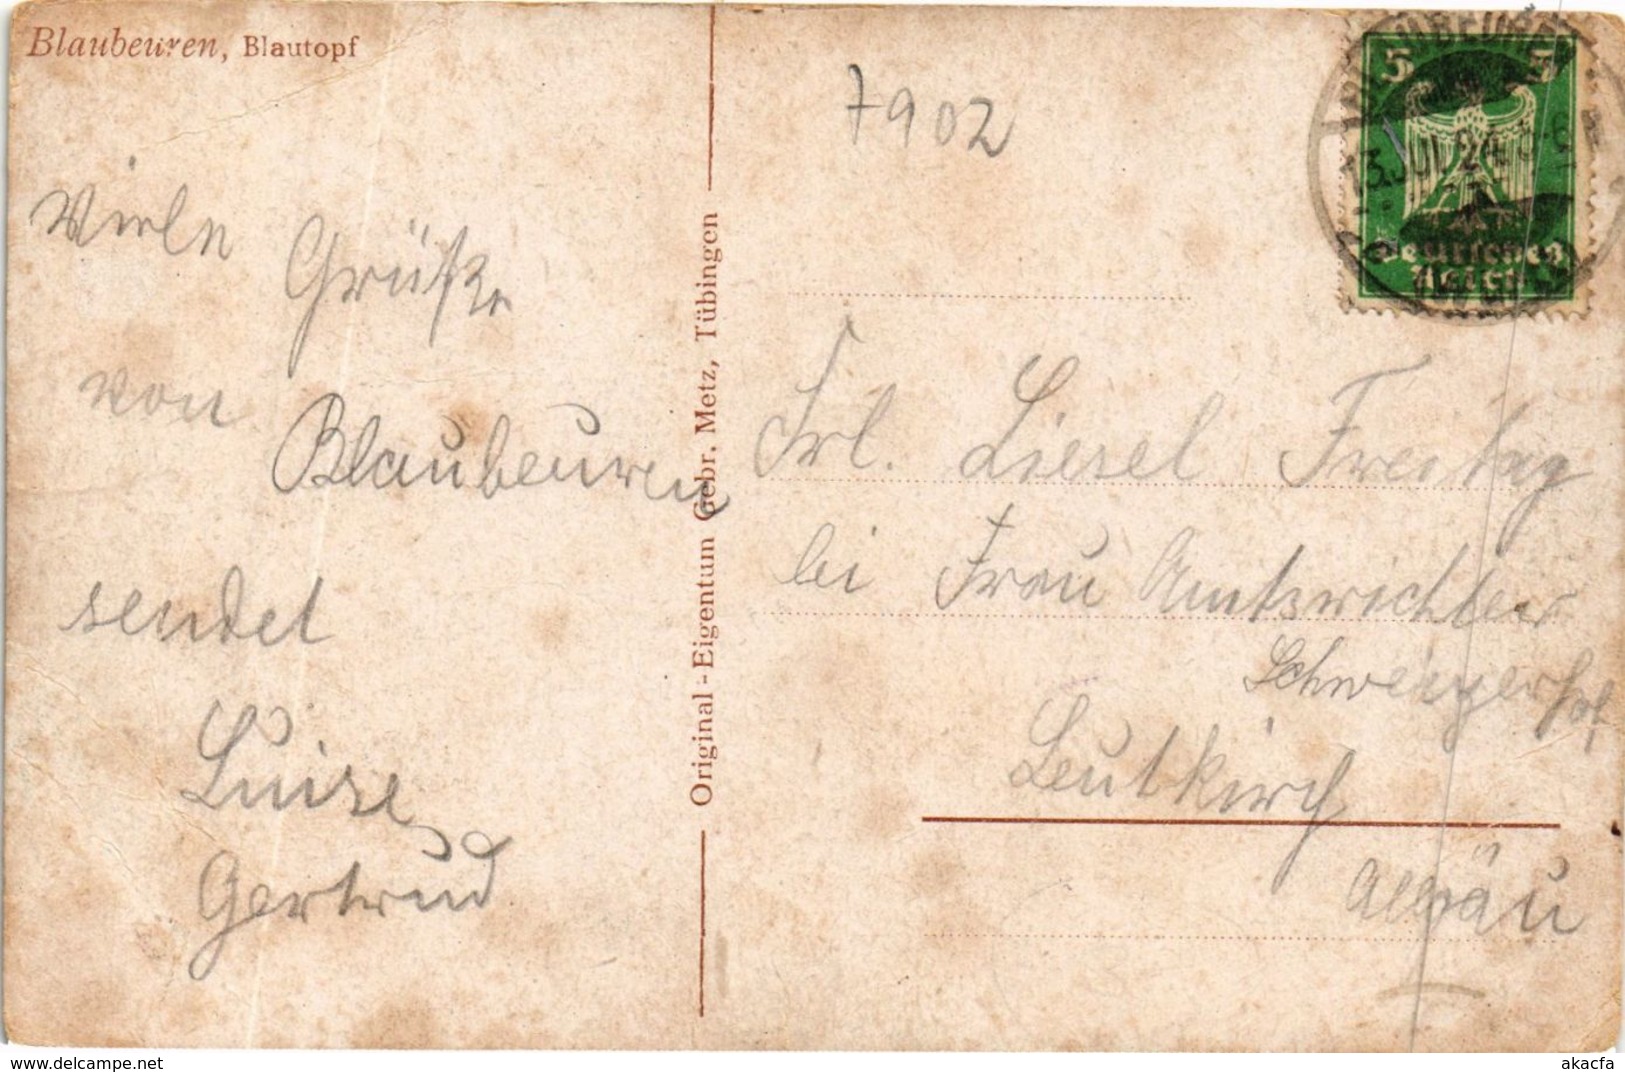 Blaubeuren, Blautopf
Vielen
Grüße
von
Blaubeuren
sendet
Luise
Gertrud
Original-Eigentum Gebr. Metz, Tübingen
7902
5 5
13.JUL.24.5-6
Deutsches
Reich
Frl. Liesel Freitag
bei Frau Amtsrichter
Leutkirch
Allgäu
delcampe.net
akacfa